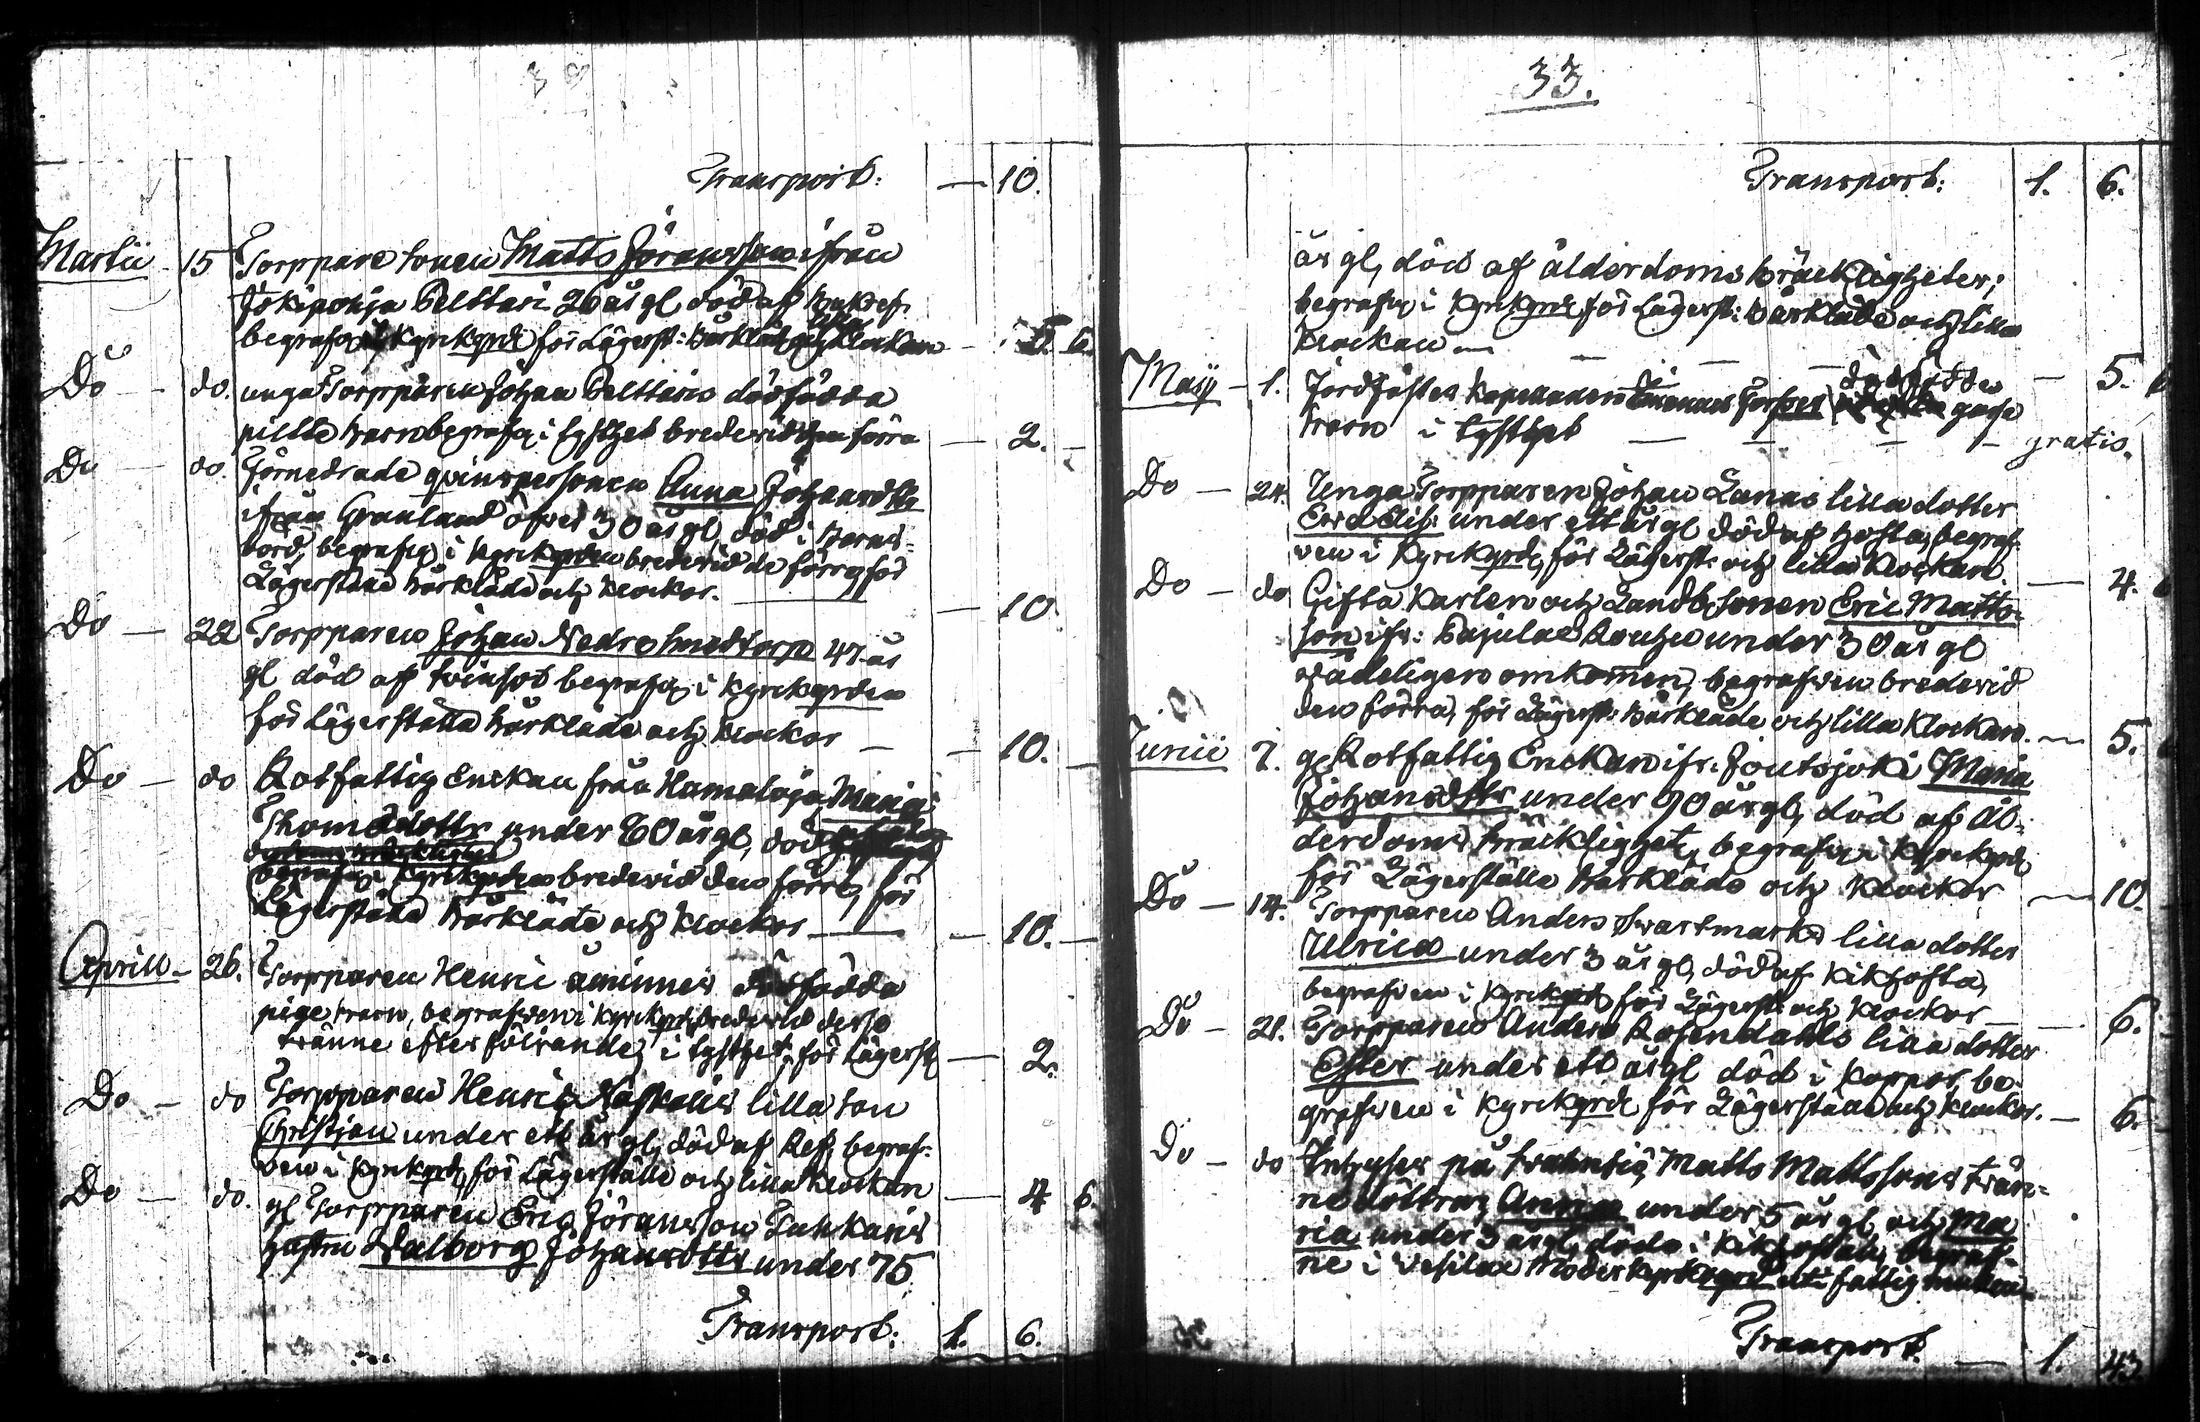 Transport: — 10.
Martii - 15 Torppare sonen Matts Jöransson ifrån
Jokipohja Pelttari 26 år gl. död af
begrafn. i Kyrkgrdn för Lägerst: Bårkläde och lilla klockan — 5. 6.
Do — do. unga Torpparen Johan Pelttaris dödfödda
pilte barn begrafn. i tysthet bredevid förra — 2. —
Do — do. Förnedrade qvinspersonen Anna Johansdttr
ifrån Granland öfver 30 år gl. död i barns-
börd, begrafn. i kyrkgrden bredevid de förra för
Lägerställe bårkläde och klockor. — 10.
Do — 22 Torpparen Johan Nedre Smedtorp 47 år
gl död af begrafn. i kyrkgrden
för Lägerställe bårkläde och klockor — 10.
Do — do Rotfattig Enckan från Hamaloja Maria
Thomædotter under 60 år gl, död
begrafn. i Kyrkgrden bredevid den förra, för
Lägerställe bårkläde och klockor — 10. —
Aprill - 26. Torpparen Henric dödfödda
pige barn, begrafven i kyrkgrd bredevid desse
tvänne efterföljande, i tysthet, för Lägerst — 2.
Do — do Torpparen Henric lilla son
Christian under ett år gl, död af Ref, begraf-
ven i kyrkgrd, för Lägerställe och lilla klockan — 4 6.
Do — do. gl Torpparen Eric Jöransson
hustru Walborg Johansdttr under 75
Transport: 1. 6.
33.
Transport: 1. 6.
år gl, död af ålderdoms bräckligheter;
begrafn i kyrkgrd för Lägerst: bårkläde och lilla
klockan — 5.
Maij - 1. Jordfästes Kapellanens dödfödda gosse
barn i tysthet — gratis.
Do — 24. Unga Torpparen Johan Lanas lilla dotter
Eva Elis: under ett år gl död af hosta, begraf-
ven i kyrkgrd, för Lägerst: och lilla klockan. — 4.
Do — do Gifta karlen och Landb. sonen Eric Matts-
son ifr: Pajula under 30 år gl
vådeligen omkommen, begrafven bredevid
den förra, för Lägerst: bårkläde och lilla klockan. — 5.
Junii 7. gl Rotfattig Enckan ifr: Joutsjoki Maria
Johansdttr under 90 år gl, död af ål-
derdoms bräcklighet, begrafn i kyrkgrd
för Lägerställe bårkläde och klockor — 10.
Do — 14. Torpparen Anders Svartmarks lilla dotter
Ulrica under 3 år gl, död af kikhosta,
begrafven i kyrkgrd för Lägerst: och klockor — 6.
Do — 21. Torpparen Anders Rosendahls lilla dotter
Ester under ett år gl död i koppor, be-
grafven i kyrkgrd för Lägerställe och klockor. — 6.
Do — do Inhyses på Matts Mattssons tvän-
ne döttrar, Anna under 5 år gl. och Ma
ria under 3 år gl, döda i kikhostan, begraf-
ne i Vesilax Moderkyrkogrd
Transport. — 1. 43